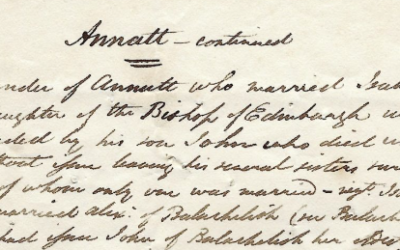 Annatt – continued
nder of Annatt who married Isab
ughter of the Bishop of Edinburgh w
eded by his son John who died w
thout issue leaving his several sisters sur
of whom only one was married – vizt. Is
married Alexr. of Balachelish (see Balach
had issue John of Balachelish her